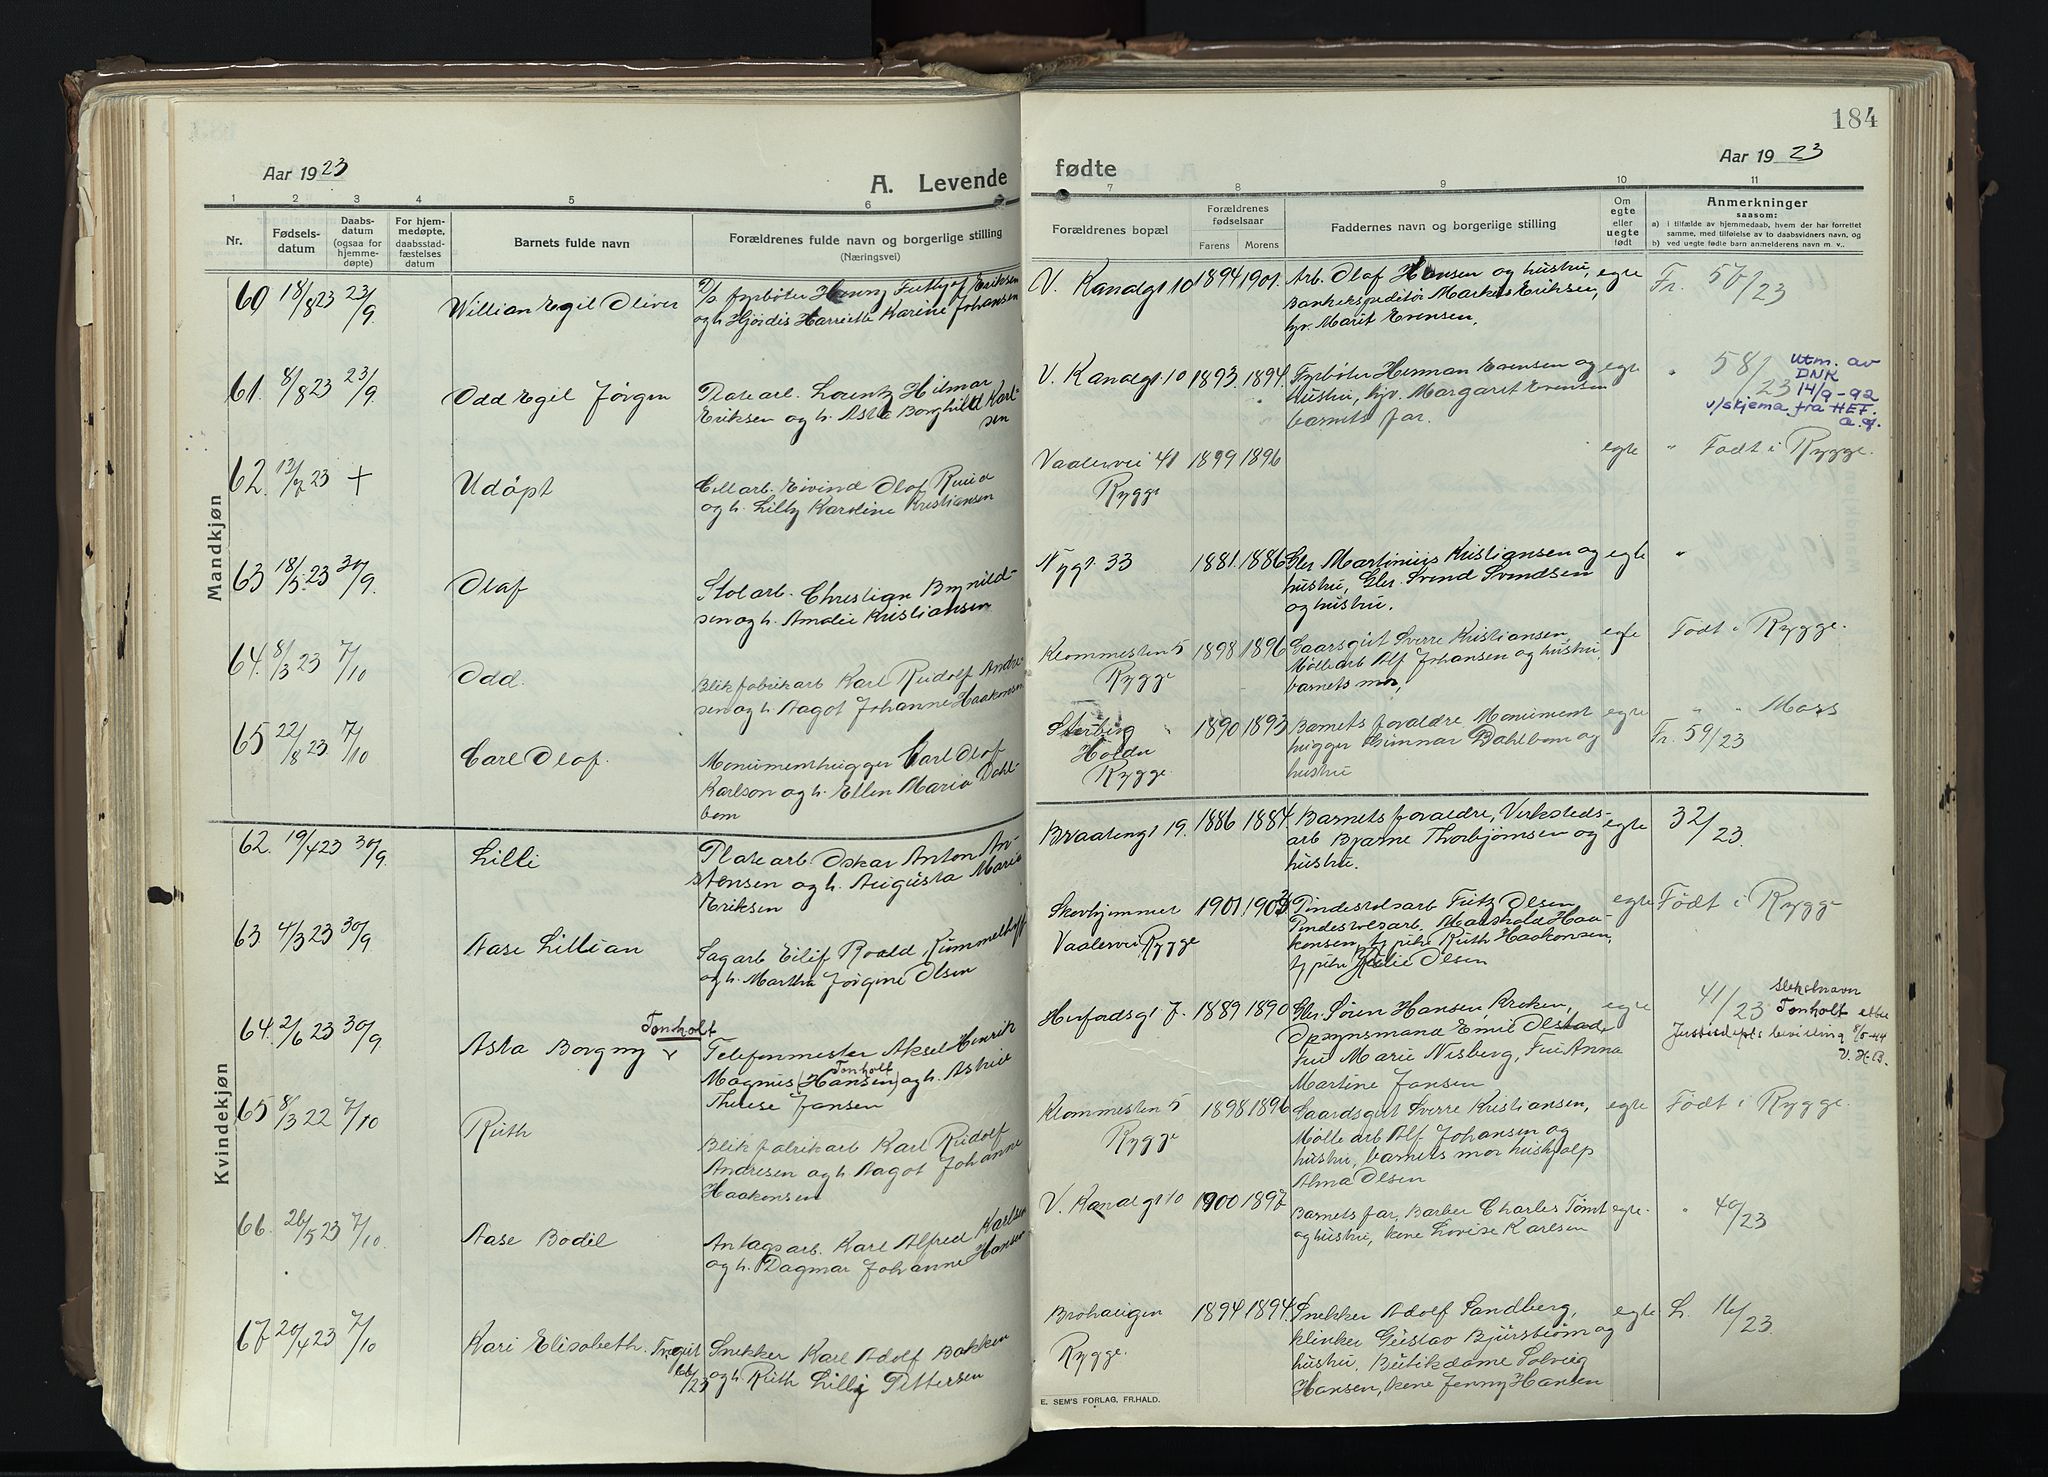 184
Aar 1923
A. Levende
fødte
Aar 1923
1 2 3 4 5 6 7 8 9 10 11
Nr.
Fødsels-
datum
Daabs-
datum
(ogsaa for
hjemme-
døpte)
For hjem-
medøpte,
daabsstad-
fæstelses
datum
Barnets fulde navn
Forældrenes fulde navn og borgerlige stilling
(Næringsvei)
Forældrenes bopæl
Forældrenes
fødselsaar
Farens Morens
Faddernes navn og borgerlige stilling
Om
egte
eller
uegte
født
Anmerkninger
saasom:
a) i tilfælde av hjemmedaab, hvem der har forrettet
samme, med tilføielse av to daabsvidners navn, og
b) ved uegte fødte barn anmelderens navn m. v..
Mandkjøn
60 18/8 23 23/9 Willian Egil Oliver
fyrbøter Henry Eriksen
og h. Hjørdis Harriette Karine Johansen
V. Kanalgt 10 1894 1901.
Arb. Olaf Hansen og hustru,
Bankekspeditør Markus Eriksen,
frv. Marit Evensen.
egte Fr. 57/23
61. 8/8 23 23/9 Odd Egil Jørgen
Platearb. Lorentz Hilmar
Eriksen og h. Asta Borghild Karl-
sen
V. Kanalgt 10 1893. 1894.
Fyrbøter Herman Evensen og
hustru, frv. Margaret Evensen
barnets far.
egte " 58/23
utm. av
DNK
14/9-92
v/skjema fra HEF.
62. 12/7 23 + Udöpt
Cellarb. Eivind Olaf
og h. Lilly Karoline Kristiansen
Vaalervei 41
Rygge
1899 1896
egte " Født i Rygge.
63 18/5 23 30/9. Olaf
Stolarb. Christian Brynild-
sen og h. Amalie Kristiansen
Nygt. 33 1881. 1886
Gls. Martinius Kristiansen og
hustru, Gls. Svend Svendsen
og hustru.
egte "
64. 8/3 23 7/10 Odd.
Blikfabrikarb Karl Rudolf Andre-
sen og h. Aagot Johanne Haakonsen
Klommesten 5
Rygge
1898 1896
Gaardsgut Sverre Kristiansen,
Møllearb Alf Johansen og hustru,
barnets mor,
egte Født i Rygge.
65 22/8 23 7/10 Carl Olaf.
Monumenthugger Carl Olof
Karlson og h. Ellen Maria Dahl-
bom
Holdn
Rygge
1890 1893
Barnets foraldre, Monument
hugger Gunnar Dahlbom og
hustru
egte " " Moss
Fr. 59/23
Kvindekjøn
62. 19/4 23 30/9. Lilli
Platearb. Oskar Anton An-
stensen og h. Augusta Marie
Eriksen
Braatengt 19. 1886 1884.
Barnets foraldre, Verksteds-
arb Bjarne Thorbjørnsen og
hustru.
egte 32/23.
63 4/3 23 30/9 Aase Lillian
Sagarb Eilif Roald Rummelhoff
og h. Martha Jørgine Olsen
Skovhjemmet
Vaalervei Rygge
1901. 1902
Pindesvolsarb Fritz Olsen
Pindesvolsarb. Haa-
konsen, tj. pike Ruth Haakonsen,
tj. pike Julie Olsen
egte Født i Rygge
64. 2/6 23 30/9 Asta Borgny Tonholt
Telefonmester Aksel Henrik
Magnus (Hansen) Tonholt og h. Astrid
Therese Jansen
Herfordsgt 7. 1889 1890
Gls. Søren Hansen, Kroken,
Opsynsmand Emil Olstad,
Fru Marie Nisberg, Fru Anna
Martine Jansen
egte 41/23
slektsnavn
Tonholt etter
Justisdepts bevilling 8/5-44
V. H.B.
65 8/3 22 7/10 Ruth
Blikfabrikarb Karl Rudolf
Andresen og h. Aagot Johanne
Haakonsen
Klommesten 5
Rygge
1898 1896
Gaardsgut Sverre Kristiansen,
Møllearb Alf Johansen og
hustru, barnets mor hushjælp
Alma Olsen
egte Født i Rygge.
66. 26/5 23 7/10. Aase Bodil
Anlagsarb. Karl Alfred Karlsen
og h. Dagmar Johanne Hansen
V. Kanalgt 10 1900 1897
Barnets far, Barber Charles Tømt
og hustru, frkne Lovise Karlsen
egte. " 40/23
67 20/4 23 7/10 Kari Elisabeth.
Snekker Karl Adolf Bakken
og h. Ruth Lilly Pettersen
Brohaugen
Rygge.
1894 1894.
Snekker Adolf Sandberg,
klinker Gustav Bjurstrøm og
hustru. Butikdame Solveig
Hansen, frkne Jenny Hansen
egte L. 16/23.
E. SEM'S FORLAG, FR.HALD.